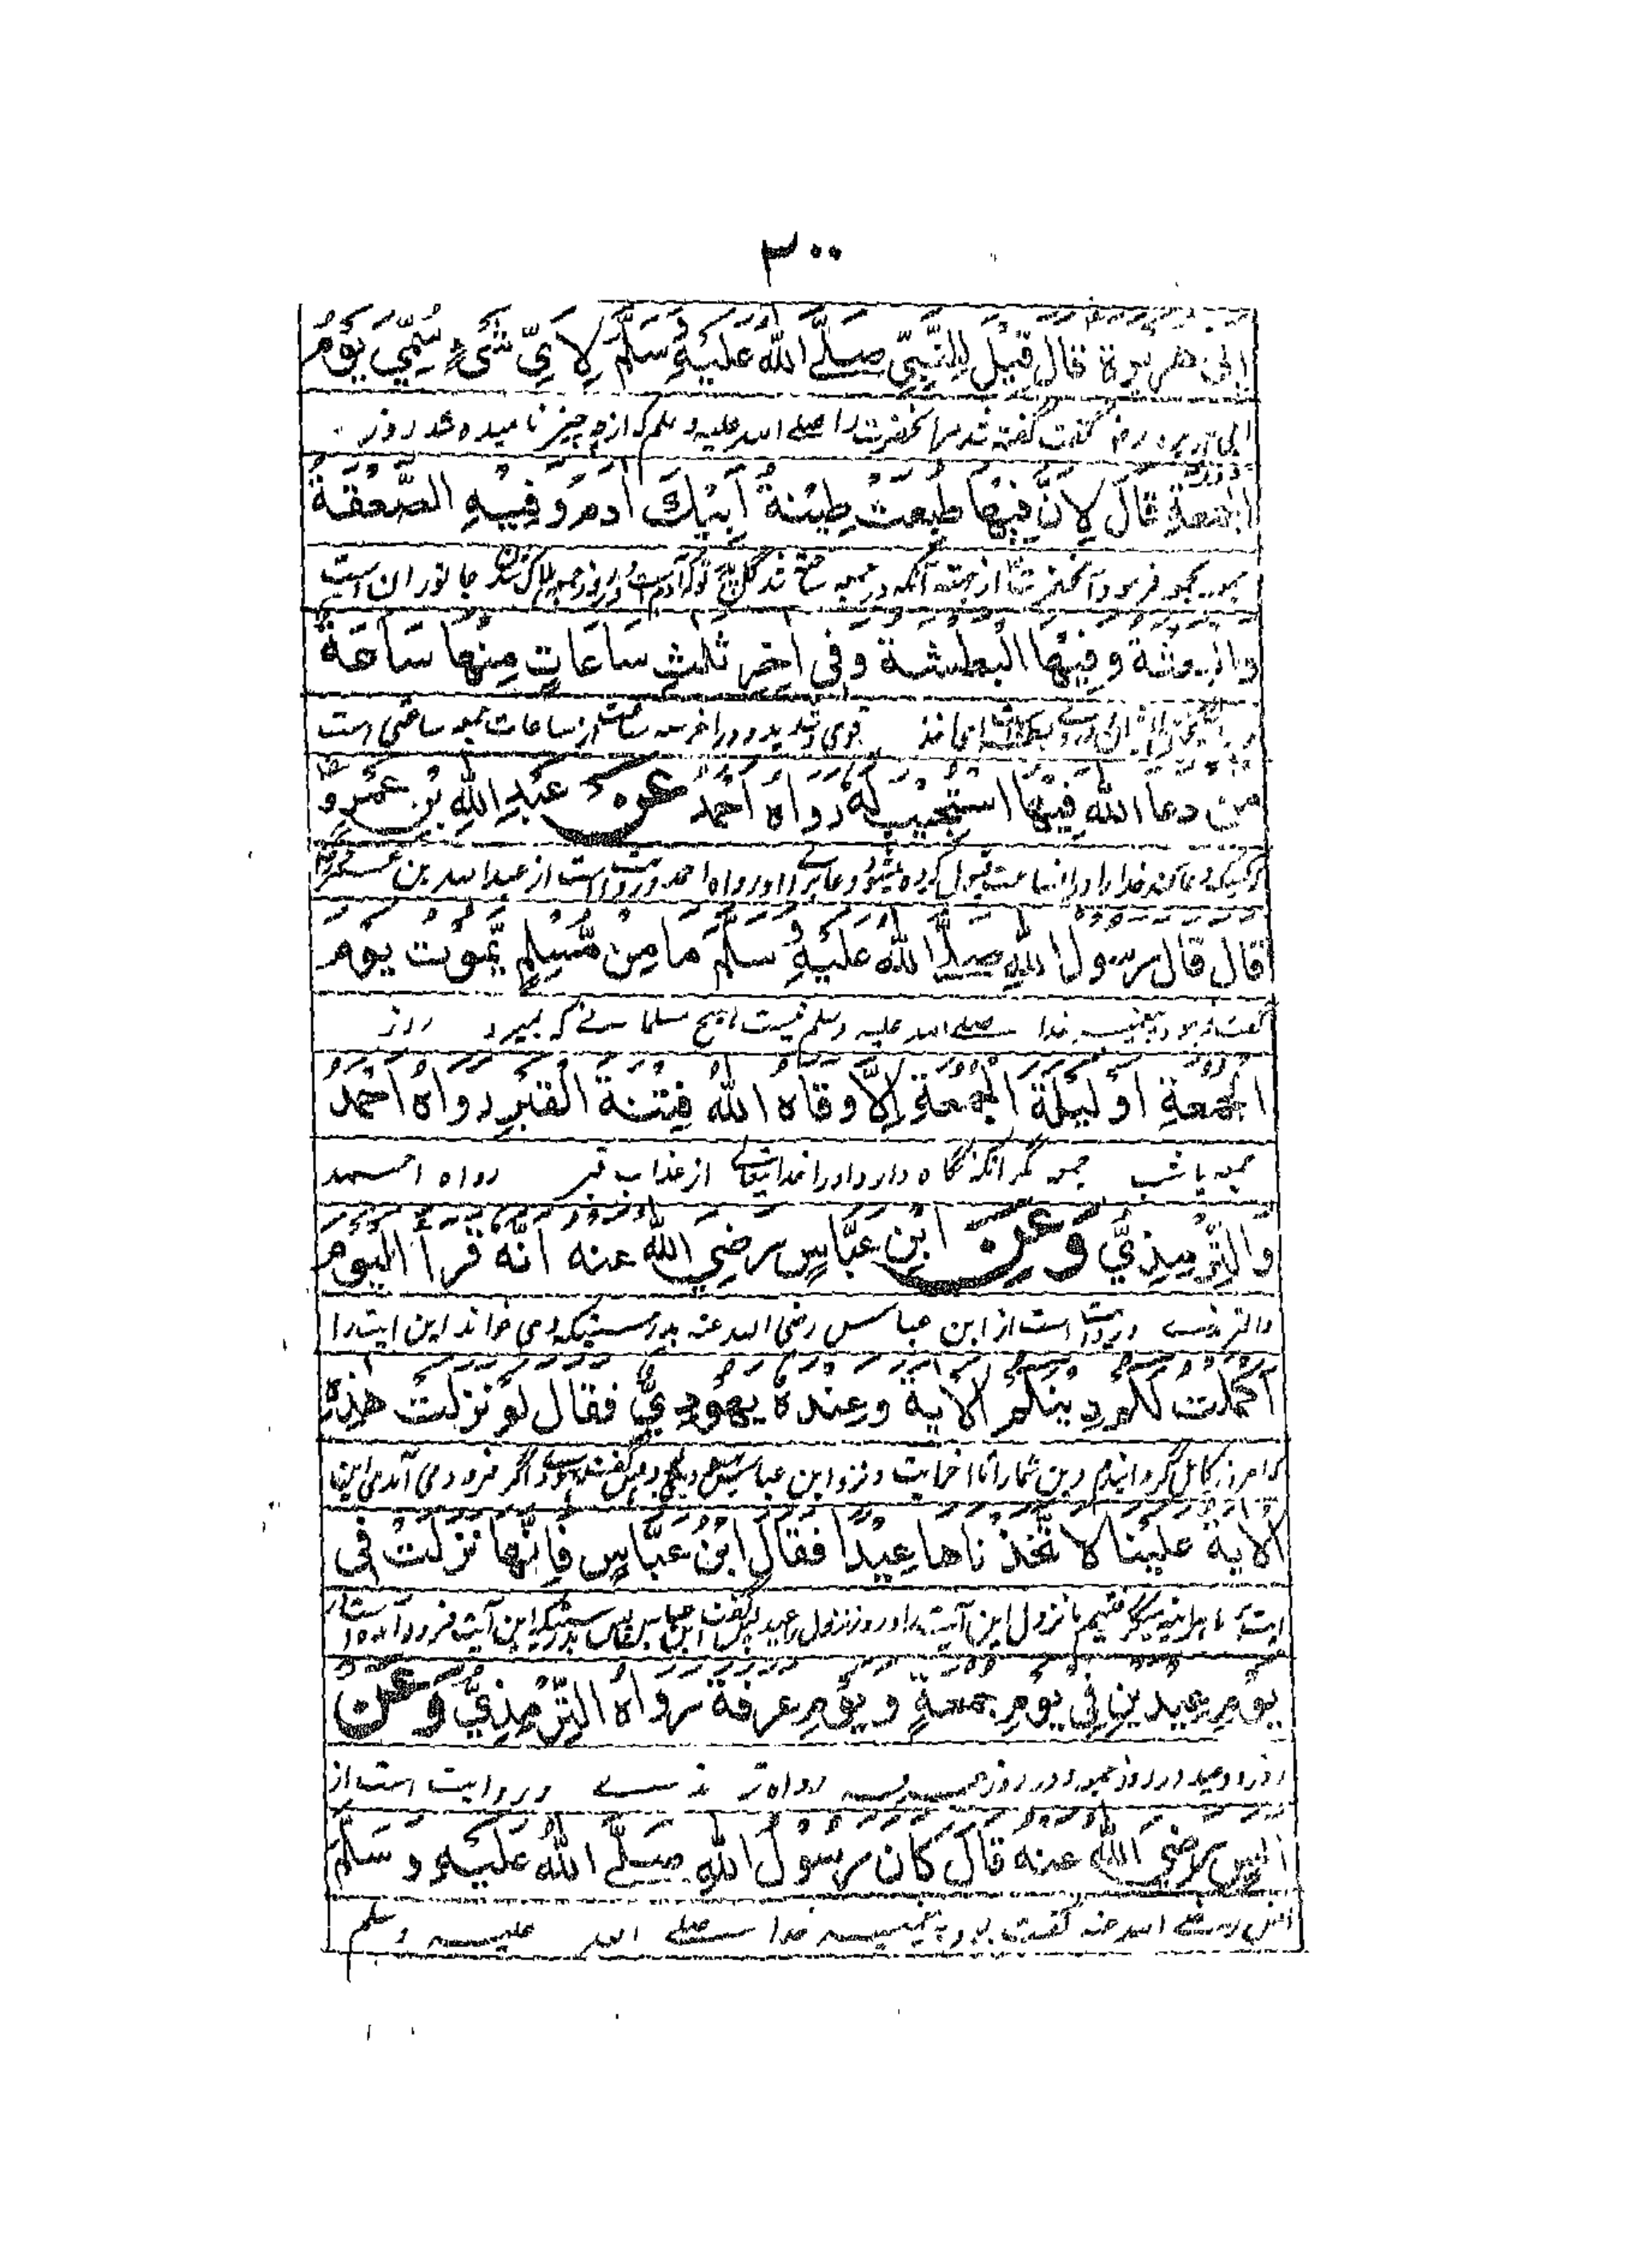 ٣٠٠
ابی هریرة قال قِیْل لِلنَّبِیِّ صلّے الله علیهِ وُسَلَّم لِاَیِّ شَیْءٍ سُمِّيَ یَوْمُ
گفت گفته شد مر آنحضرت را صلے الله علیه و سلم که از چه چیز نامیده شد روز
الجمعةِ قال لِاَنَّ فِیْهَا طُبِعَتْ طِیْنَةُ اَبِیْكَ اٰدمَ وَفِیْهِ الصَّعْقَةُ
جانوران است
والبعثة وفِیْهَا البطشة وفی اٰخِر ثلٰثِ سَاعَاتٍ مِنْهَا سَاعَةٌ
قوی و شدید و در آخر سه ساعت از ساعات جمعه ساعتی است
من دعا اللهَ فِیْهَا اسْتُجِیْبَ لَهٗ رَوَاهُ اَحْمَدُ عن عَبْدِ اللهِ بْنِ عَمْرٍو
کسیکه دعا کند خدا را در انساعت قبول کرده میشود دعاے او را رواه احمد و روایت است از عبدالله بن
قال قال رسولُ اللهِ صلَّے اللهُ عَلَیْهِ وُسلَّمَ مَا مِنْ مُّسْلِمٍ یَّمُوْتُ یَوْمَ
گفت فرمود پیغمبر خدا صلے الله علیه و سلم نیست هیچ مسلمانے که بمیرد روز
الجُمُعَةِ اَوْ لَیْلَةَ الْجُمُعَةِ اِلَّا وَقَاهُ اللهُ فِتْنَةَ الْقَبْرِ رَوَاهُ اَحْمَدُ
جمعه یا شب جمعه مگر آنکه نگاه دارد او را خدایتعالے از عذاب قبر رواه احمد
وَالتِّرْمِذِيُّ وَعَنِ ابْنِ عَبَّاسٍ رضِيَ الله عنه اَنَّهٗ قَرَأَ الْیَوْمَ
والترمذے و روایت است از ابن عباس رضی الله عنه بدرستیکه وی خواند این آیت را
اَكْمَلْتُ لَكُمْ دِیْنَكُمْ الْاٰیَةَ وَعِنْدَهٗ یَهُوْدِيٌّ فقال لَوْ نَزَلَتْ هٰذِهِ
که امروز کامل گردانیدم دین شما را تا آخر آیت و نزد ابن عباس اگر فرود می آمدی این
الْاٰیَةُ عَلَیْنَا لَاتَّخَذْنَاهَا عِیْدًا فَقَالَ ابْنُ عَبَّاسٍ فَاِنَّهَا نَزَلَتْ فِی
آیت بر ما هرآینه میگرفتیم ما نزول این آیت را و روز نزول عید پس گفت ابن عباس پس بدرستیکه این آیت فرود آمده است
یَوْمِ عِیْدَیْنِ فِيْ یَوْمِ جمعةٍ وَیَوْمِ عرفةَ رَوَاهُ التِّرْمِذِيُّ وَعَنْ
روز دو عید در روز جمعه و در روز عرفه رواه ترمذے و روایت است از
اَنَسٍ رضِيَ اللهُ عنه قَالَ كَانَ رسُوْلُ اللهِ صَلَّے اللهُ عَلَیْهِ وَسَلَّمَ
انس رضے الله عنه گفت بود پیغمبر خدا صلے الله علیه و سلم